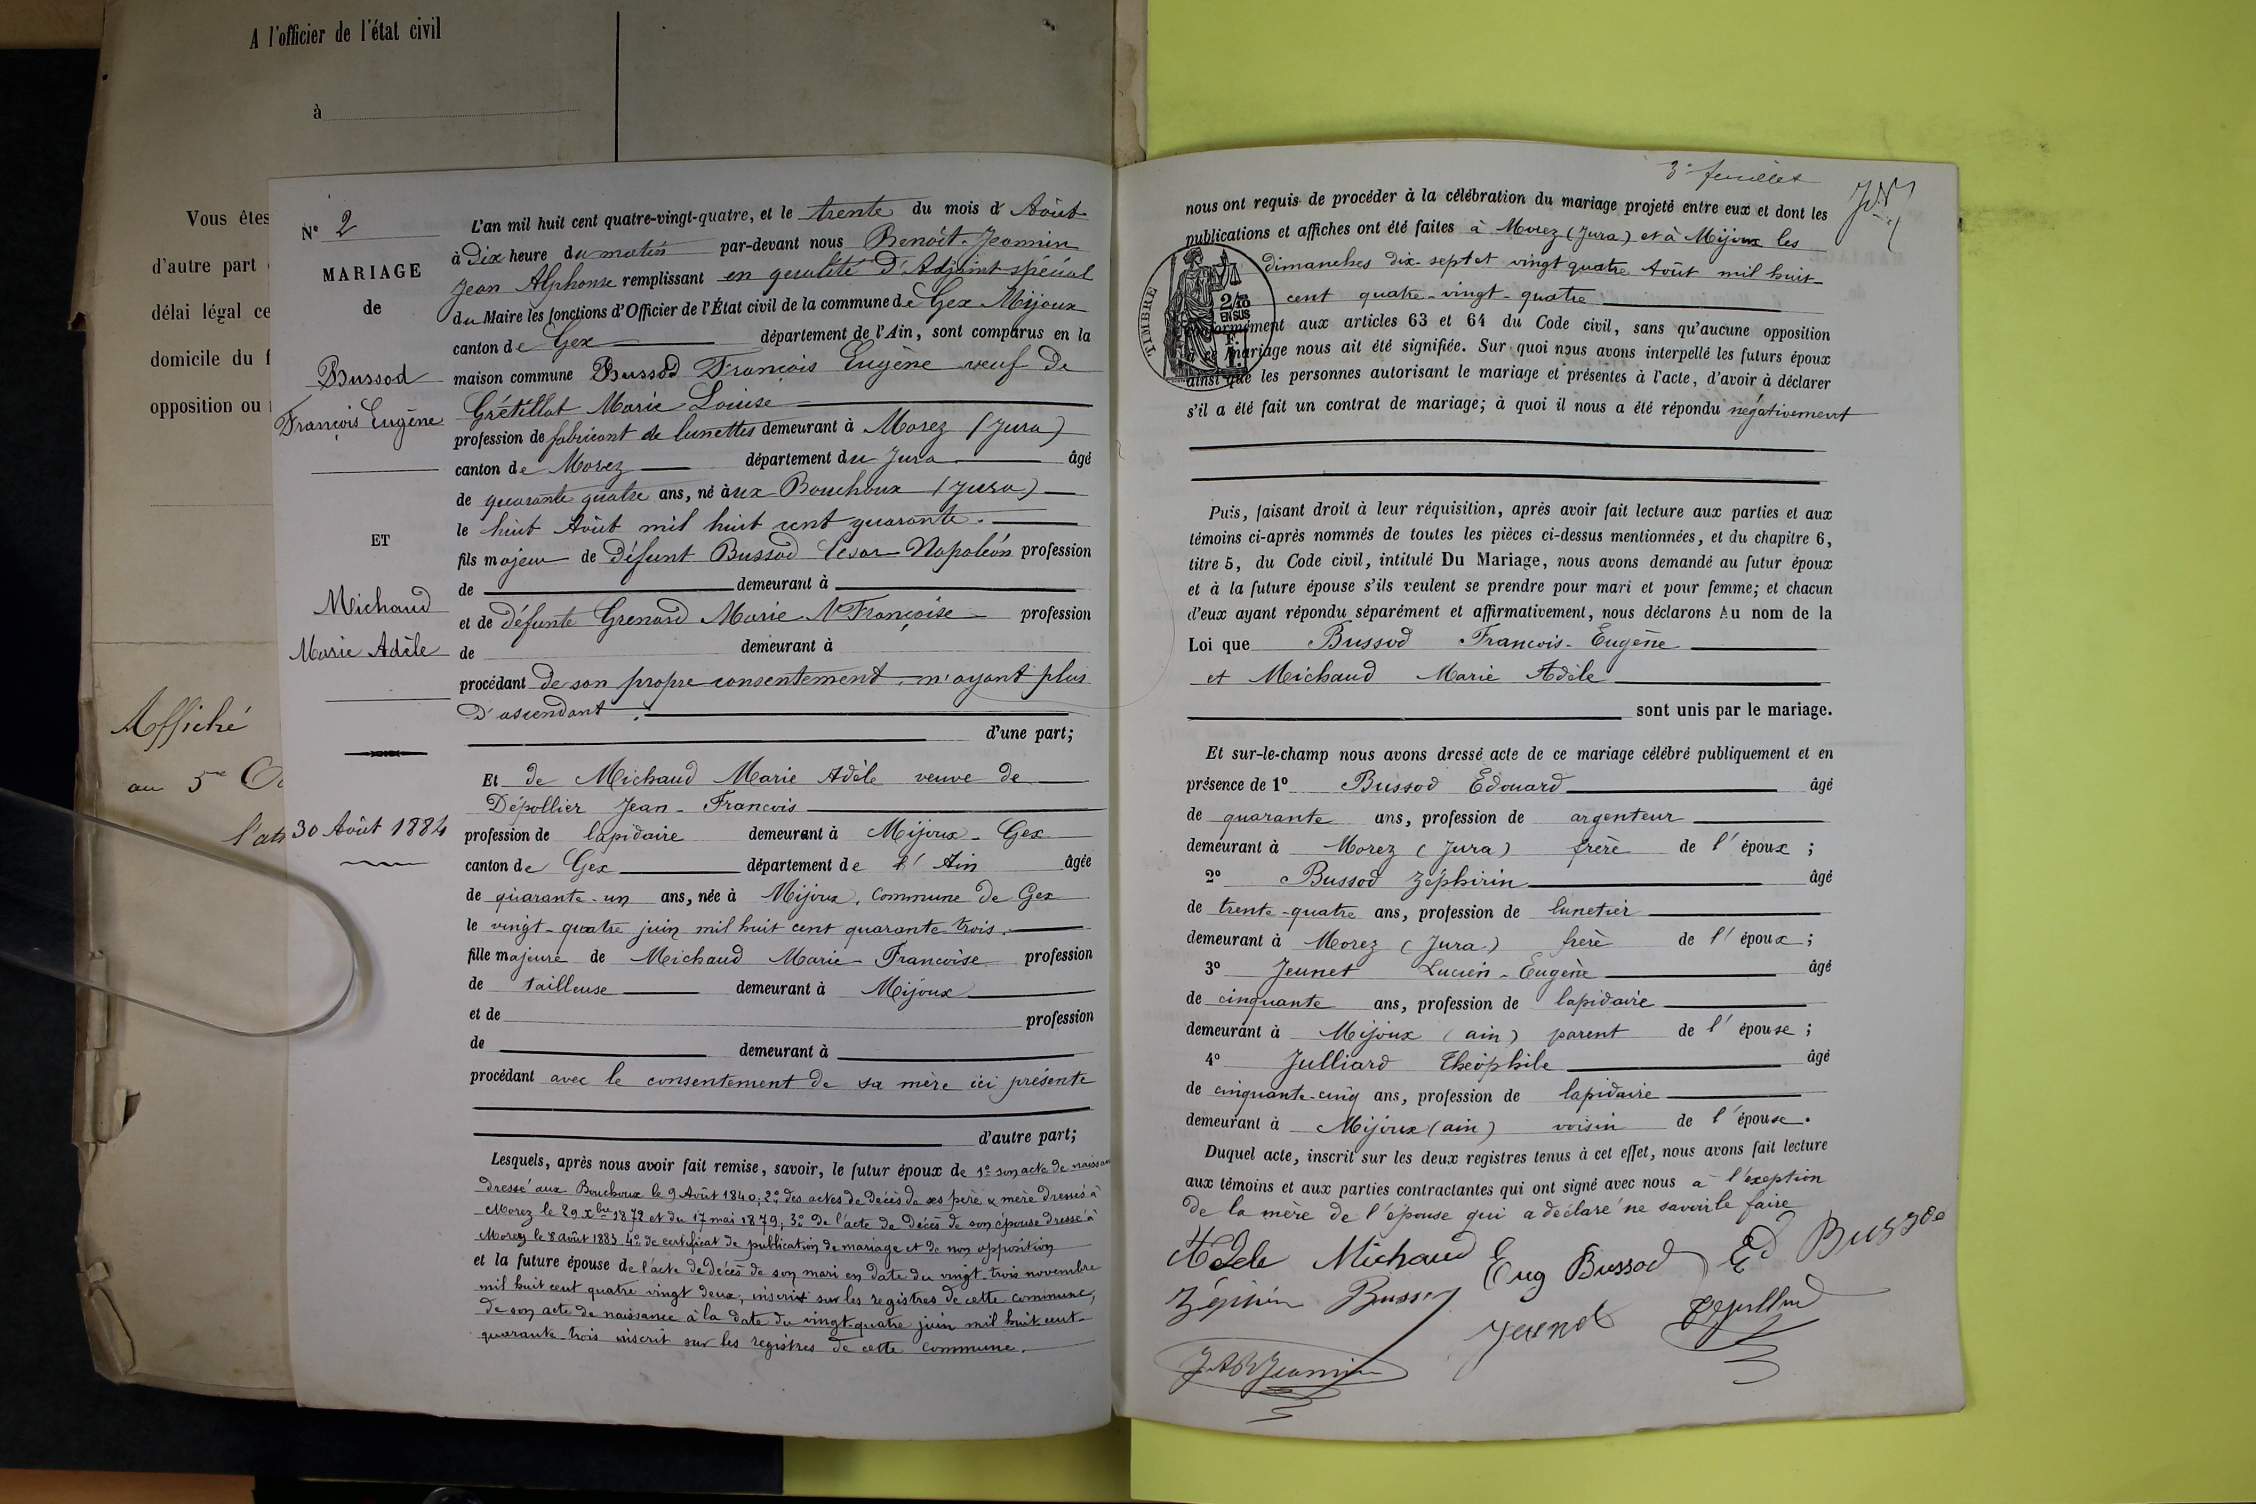 A l'officier de l'état civil
à
Vous êtes
d'autre part
délai légal ce
domicile du f
opposition ou
Affiché
au 5me
l'an
N° 2
MARIAGE
de
Bussod
François Eugène
ET
Michaud
Marie Adèle
30 Août 1884
L'an mil huit cent quatre-vingt-quatre, et le trente du mois d' Août
à Dix heure du matin par-devant nous Benoît Jeannin
Jean Alphonse remplissant en qualité d'Adjoint spécial
du Maire les fonctions d'Officier de l'État civil de la commune de Gex Mijoux
canton de Gex département de l'Ain, sont comparus en la
maison commune Bussod François Eugène veuf de
Grétillat Marie Louise
profession de fabricant de lunettes demeurant à Morez (Jura)
canton de Morez département du Jura âgé
de quarante quatre ans, né aux Bouchoux (Jura)
le huit Août mil huit cent quarante.
fils majeur de Défunt Bussod Cesar Napoléon profession
de demeurant à
et de défunte Grenard Marie Françoise profession
de demeurant à
procédant de son propre consentement, n'ayant plus
d'ascendant.
d'une part;
Et de Michaud Marie Adèle veuve de
Dépollier Jean-François
profession de lapidaire demeurant à Mijoux-Gex
canton de Gex département de l'Ain âgée
de quarante-un ans, née à Mijoux, commune de Gex
le vingt-quatre juin mil huit cent quarante trois.
fille majeure de Michaud Marie-Françoise profession
de tailleuse demeurant à Mijoux
et de profession
de demeurant à
procédant avec le consentement de sa mère ici présente
d'autre part;
Lesquels, après nous avoir fait remise, savoir, le futur époux de 1° son acte de naissan
dressé aux Bouchoux le 9 Août 1840; 2° des actes de décès de ses père & mère dressés à
Morez le 29 Xbre 1872 et du 17 mai 1879; 3° de l'acte de décès de son épouse dressé à
Morez le 8 août 1883 4° de certificat de publication de mariage et de non opposition
et la future épouse de l'acte de décès de son mari en date du vingt-trois novembre
mil huit cent quatre vingt deux, inscrit sur les registres de cette commune,
de son acte de naissance à la date du vingt-quatre juin mil huit cent
quarante-trois inscrit sur les registres de cette commune.
3e feuillet
nous ont requis de procéder à la célébration du mariage projeté entre eux et dont les
publications et affiches ont été faites à Morez (Jura) et à Mijoux les
dimanches dix-sept et vingt quatre Août mil huit
cent quatre-vingt-quatre
TIMBRE
2/10
EN SUS
conformément aux articles 63 et 64 du Code civil, sans qu'aucune opposition
à ce mariage nous ait été signifiée. Sur quoi nous avons interpellé les futurs époux
ainsi que les personnes autorisant le mariage et présentes à l'acte, d'avoir à déclarer
s'il a été fait un contrat de mariage; à quoi il nous a été répondu négativement
Puis, faisant droit à leur réquisition, après avoir fait lecture aux parties et aux
témoins ci-après nommés de toutes les pièces ci-dessus mentionnées, et du chapitre 6,
titre 5, du Code civil, intitulé Du Mariage, nous avons demandé au futur époux
et à la future épouse s'ils veulent se prendre pour mari et pour femme; et chacun
d'eux ayant répondu séparément et affirmativement, nous déclarons Au nom de la
Loi que Bussod François-Eugène
et Michaud Marie Adèle
sont unis par le mariage.
Et sur-le-champ nous avons dressé acte de ce mariage célébré publiquement et en
présence de 1° Bussod Edouard âgé
de quarante ans, profession de argenteur
demeurant à Morez (Jura) frère de l'époux;
2° Bussod Zéphirin âgé
de trente-quatre ans, profession de lunetier
demeurant à Morez (Jura) frère de l'époux;
3° Jeunet Lucien-Eugène âgé
de cinquante ans, profession de lapidaire
demeurant à Mijoux (ain) parent de l'épouse;
4° Julliard Théophile âgé
de cinquante-cinq ans, profession de lapidaire
demeurant à Mijoux (ain) voisin de l'épouse.
Duquel acte, inscrit sur les deux registres tenus à cet effet, nous avons fait lecture
aux témoins et aux parties contractantes qui ont signé avec nous à l'exeption
de la mère de l'épouse qui a déclaré ne savoir le faire
Adele Michaud Eug Bussod Ed Bussod
Zéphirin Bussod Jeunet
J A B Jeannin